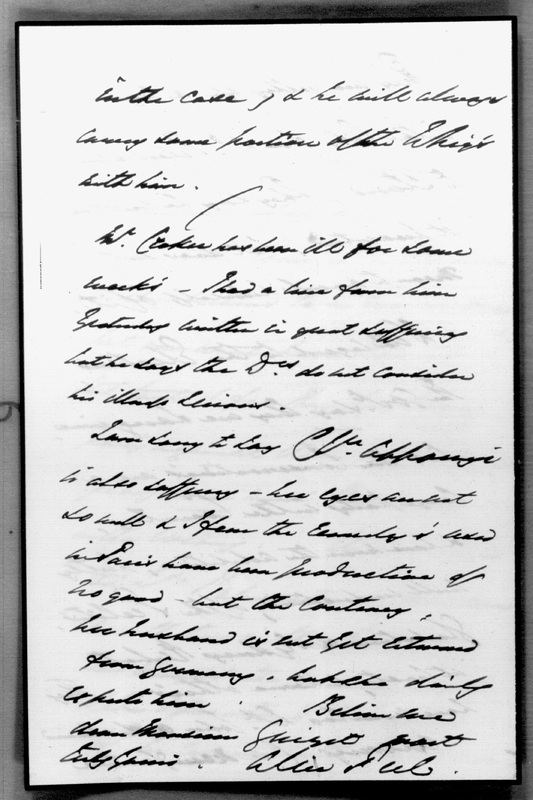 in the case, & he will always
carry some portion of the Whigs
with him.
Mr. Croker has been ill for some
weeks - I had a line from him
Yesterday written in great suffering
but he says the Drs. do not consider
his illness serious.
I am sorry to say Ctss. Appony
is also suffering - her eyes are not
so well & I fear the remedies used
in Paris have been productive of
no good - but the contrary,
her husband is not yet returned
from Germany, but she daily
expects him. Believe me
dear Monsieur Guizot most
truly yours.